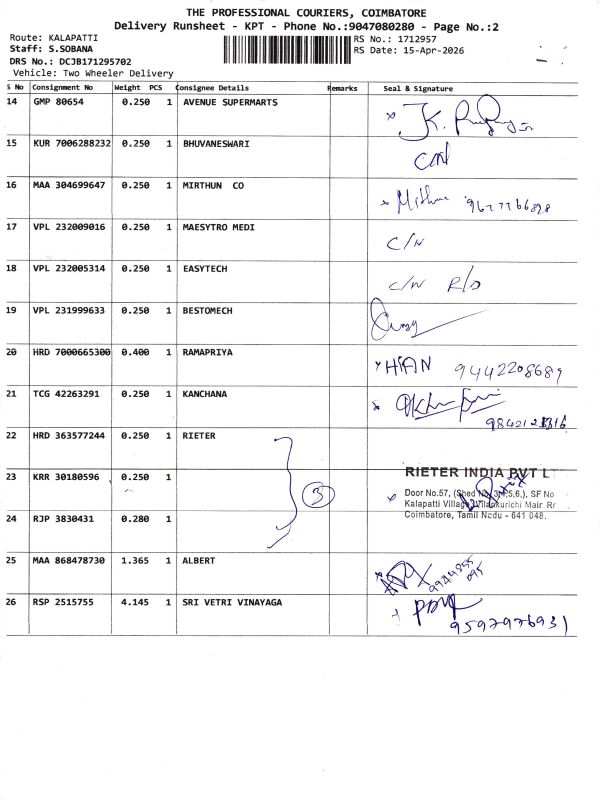 THE PROFESSIONAL COURIERS, COIMBATORE
Delivery Runsheet - KPT - Phone No.:9047080280 - Page No.:2
Route: KALAPATTI RS No.: 1712957
Staff: S.SOBANA RS Date: 15-Apr-2026
DRS No.: DCJB171295702
Vehicle: Two Wheeler Delivery
S No Consignment No Weight PCS Consignee Details Remarks Seal & Signature
14 GMP 80654 0.250 1 AVENUE SUPERMARTS
15 KUR 7006288232 0.250 1 BHUVANESWARI
16 MAA 304699647 0.250 1 MIRTHUN CO
17 VPL 232009016 0.250 1 MAESYTRO MEDI C/N
18 VPL 232005314 0.250 1 EASYTECH C/N R/O
19 VPL 231999633 0.250 1 BESTOMECH
20 HRD 7000665300 0.400 1 RAMAPRIYA 9442208689
21 TCG 42263291 0.250 1 KANCHANA
22 HRD 363577244 0.250 1 RIETER
23 KRR 30180596 0.250 1 3 RIETER INDIA PVT LT
Door No.57, (Shed No. 3,4,5,6,), SF No
Kalapatti Village, Vilankurichi Main Ro
Coimbatore, Tamil Nadu - 641 048.
24 RJP 3830431 0.280 1
25 MAA 868478730 1.365 1 ALBERT
26 RSP 2515755 4.145 1 SRI VETRI VINAYAGA
9597976931